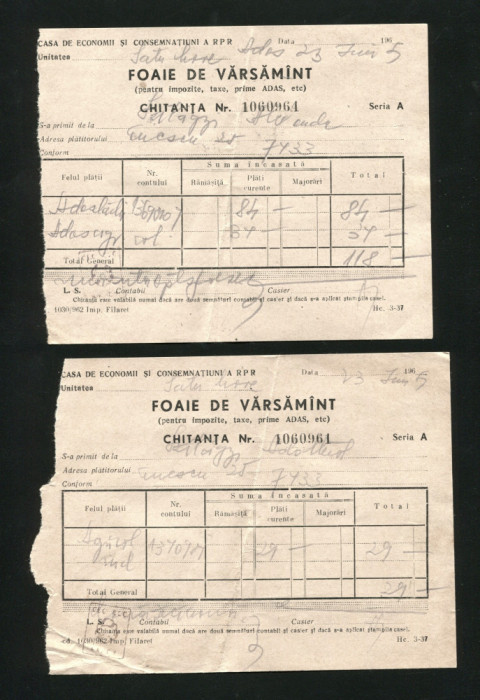 CASA DE ECONOMII ȘI CONSEMNAȚIUNI A RPR Data 23 Iuni 1965
Unitatea Satu Mare
FOAIE DE VĂRSĂMÎNT
(pentru impozite, taxe, prime ADAS, etc)
CHITANȚA Nr. 1060964 Seria A
S-a primit de la
Adresa plătitorului 20
Conform 7433
Suma încasată
Felul plății Nr. contului Rămășiță Plăți curente Majorări Total
84 — 84 —
34 — 34 —
Total General 118 —
L. S. Contabil Casier
Chitanța este valabilă numai dacă are două semnături contabil și casier și dacă s-a aplicat ștampila casei.
1030/962 Imp. Filaret Hc. 3-37
CASA DE ECONOMII ȘI CONSEMNAȚIUNI A RPR Data 23 Iuni 1965
Unitatea Satu Mare
FOAIE DE VĂRSĂMÎNT
(pentru impozite, taxe, prime ADAS, etc)
CHITANȚA Nr. 1060961 Seria A
S-a primit de la
Adresa plătitorului 20
Conform 7433
Suma încasată
Felul plății Nr. contului Rămășiță Plăți curente Majorări Total
29 — 29 —
Total General 29 —
L. S. Contabil Casier
Chitanța este valabilă numai dacă are două semnături contabil și casier și dacă s-a aplicat ștampila casei.
cd. 1030/962 Imp. Filaret Hc. 3-37